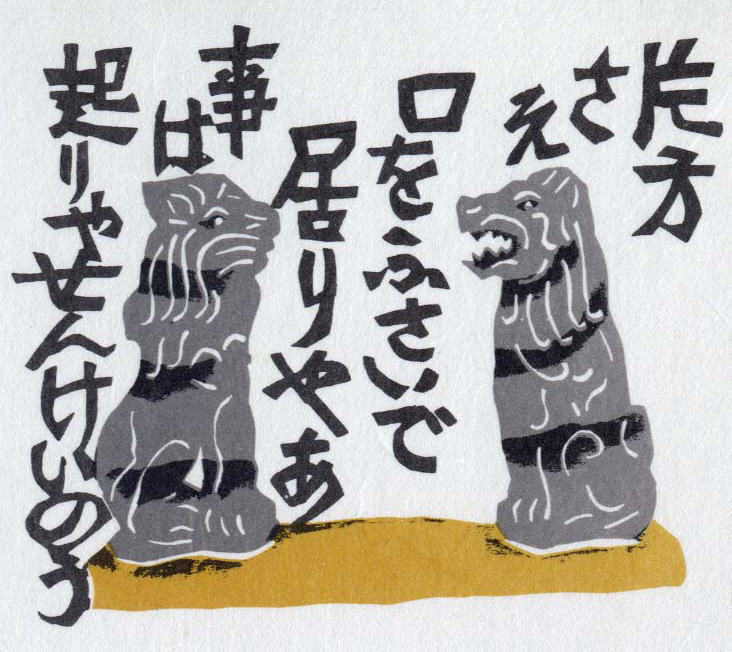 片方
さえ
口をふさいで
居りやあ
事は
起りやせんけいのう